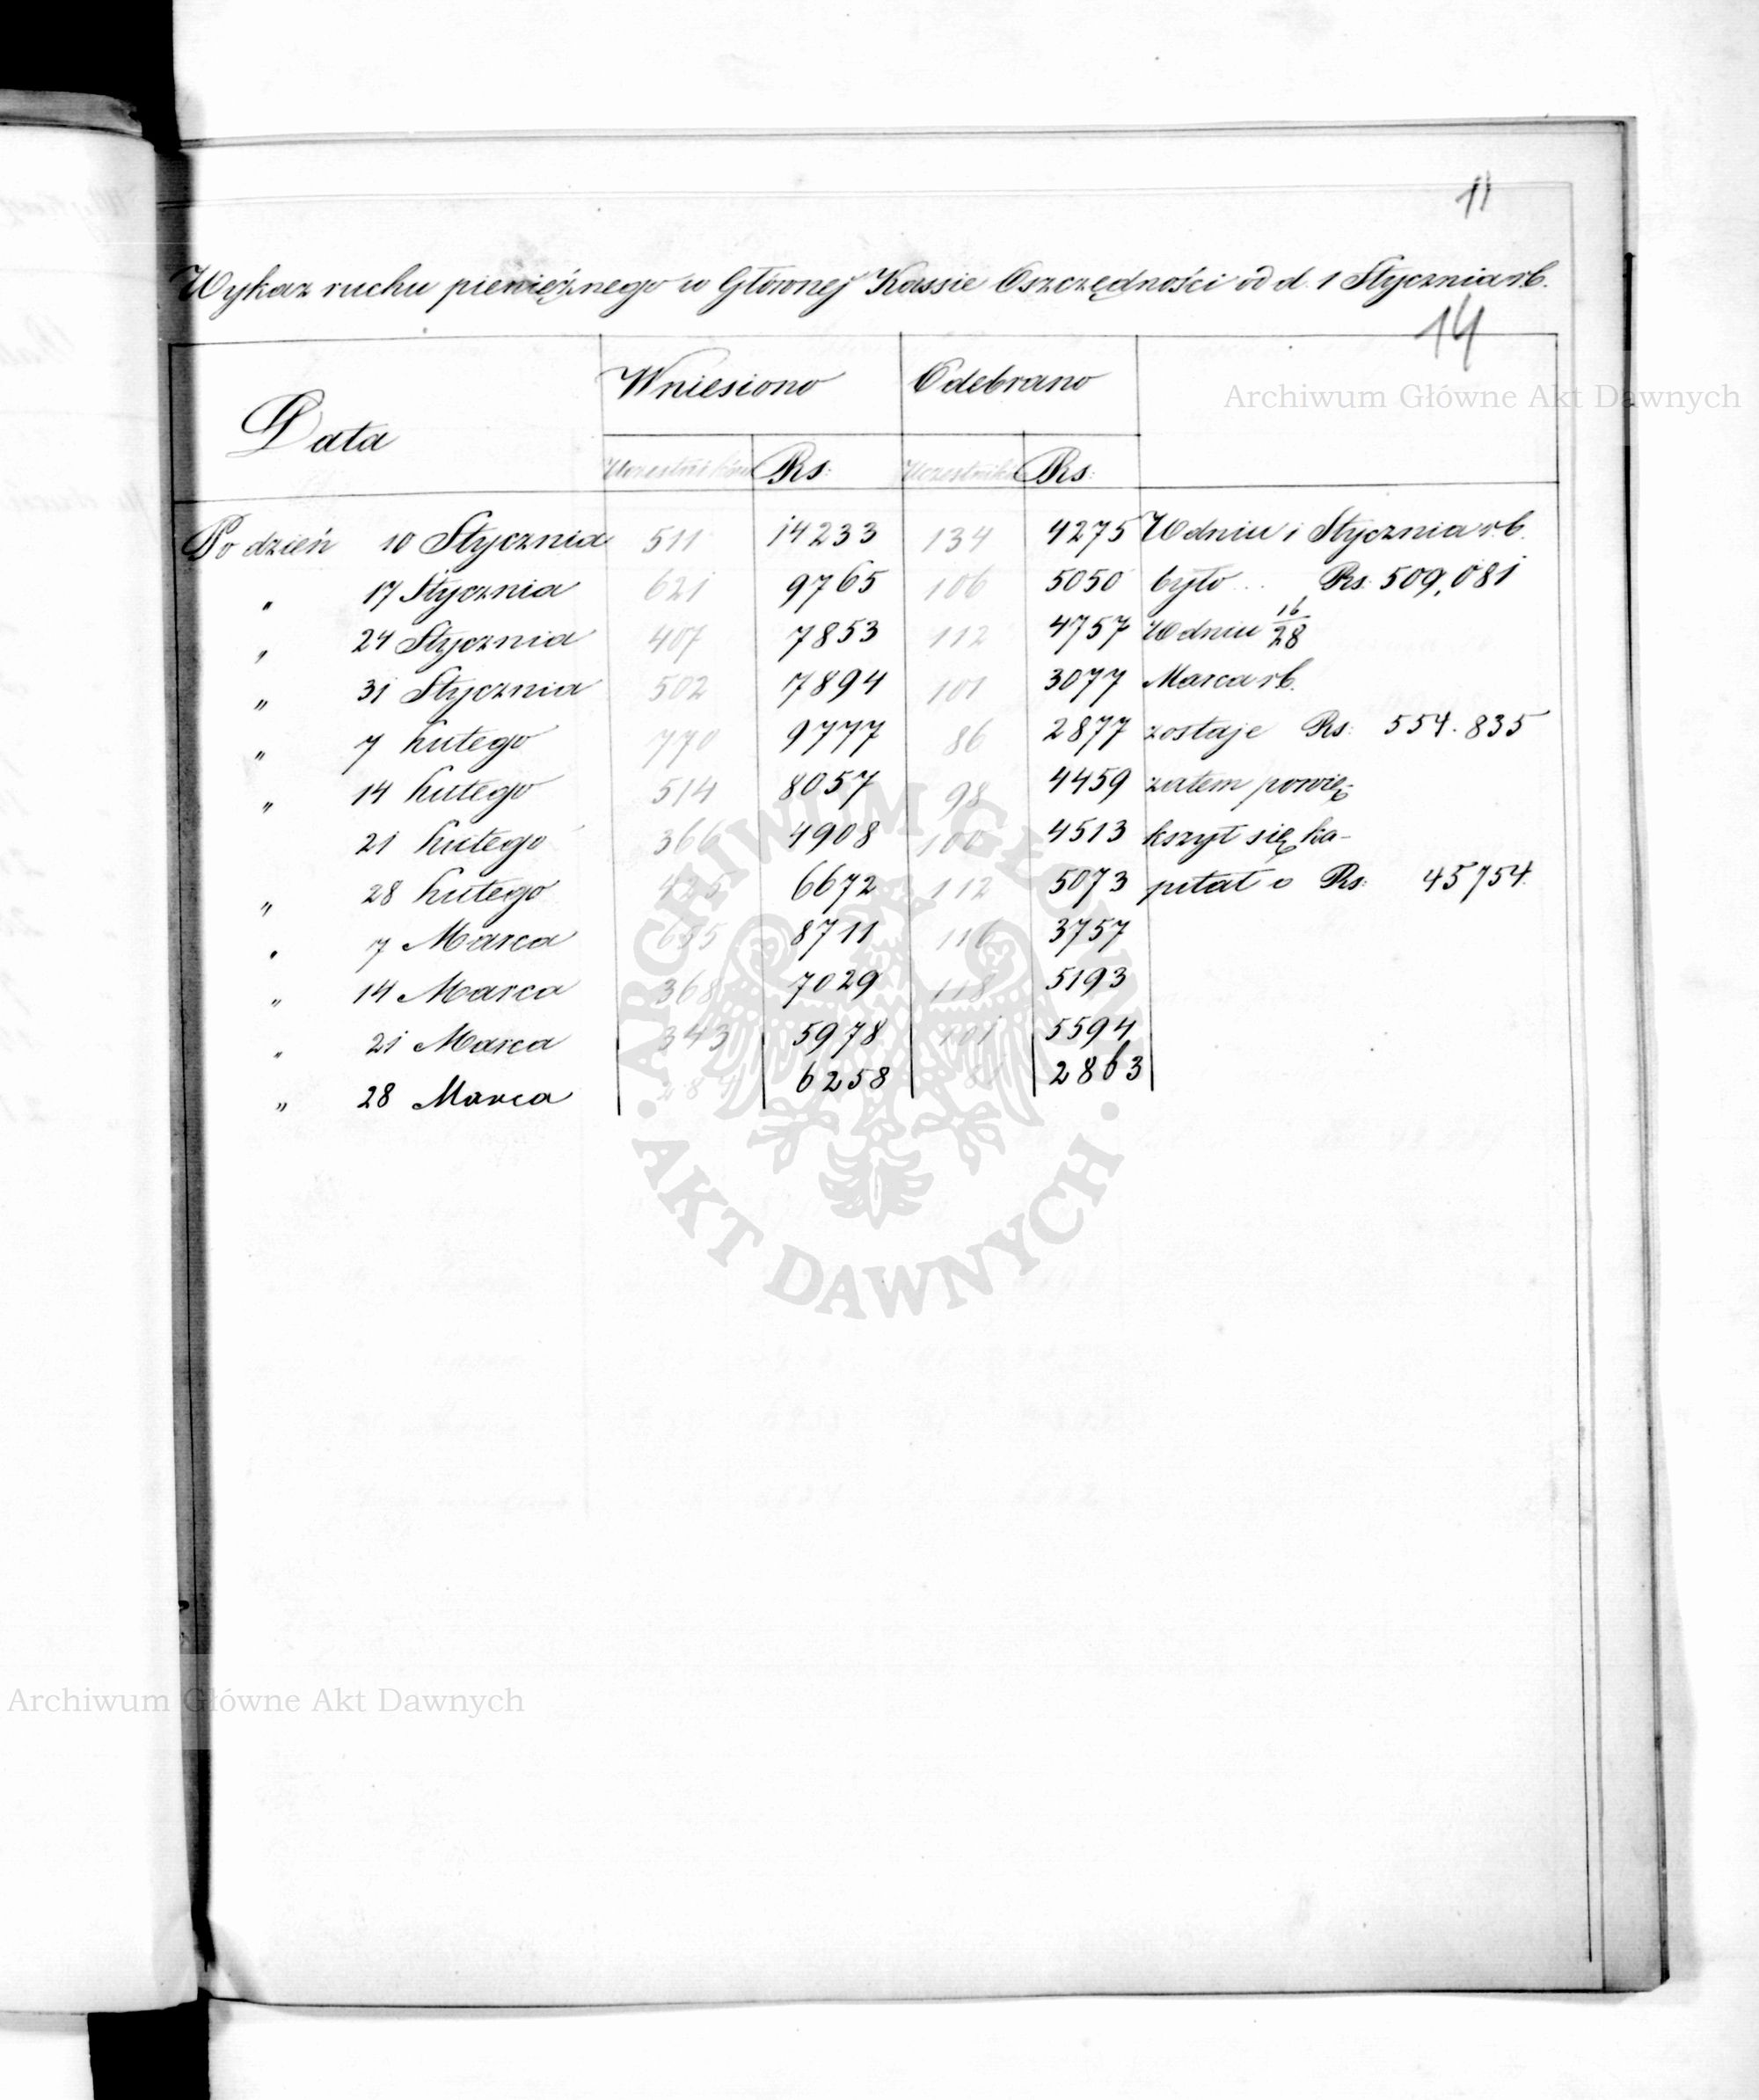 11
Wykaz ruchu pieniężnego w Głównej Kassie Oszczędności od d. 1 Stycznia rb.
14
Archiwum Główne Akt Dawnych
Data Wniesiono Odebrano
Uczestników Rs: Uczestników Rs:
Po dzień 10 Stycznia 511 14233 134 4275 W dniu 1 Stycznia r.b.
" 17 Stycznia 621 9765 106 5050 było .. Rs. 509,081
" 24 Stycznia 407 7853 112 4757 W dniu 16/28
" 31 Stycznia 502 7894 101 3077 Marca rb.
" 7 Lutego 770 9777 86 2877 zostaje Rs: 554.835
" 14 Lutego 514 8057 98 4459 zatem powię-
21 Lutego 366 4908 100 4513 kszył się ka-
" 28 Lutego 425 6672 112 5073 pitał o Rs: 45754.
" 7 Marca 655 8711 116 3757
" 14 Marca 368 7029 118 5193
" 21 Marca 343 5978 101 5594
" 28 Marca 6258 2863
ARCHIWUM GŁÓWNE
AKT DAWNYCH
Archiwum Główne Akt Dawnych